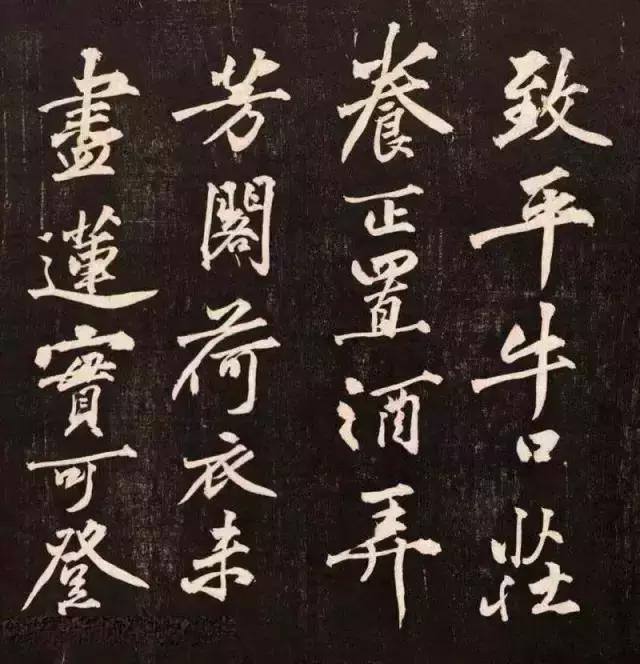 致平牛口莊
養正置酒弄
芳閣荷衣未
盡蓮實可登